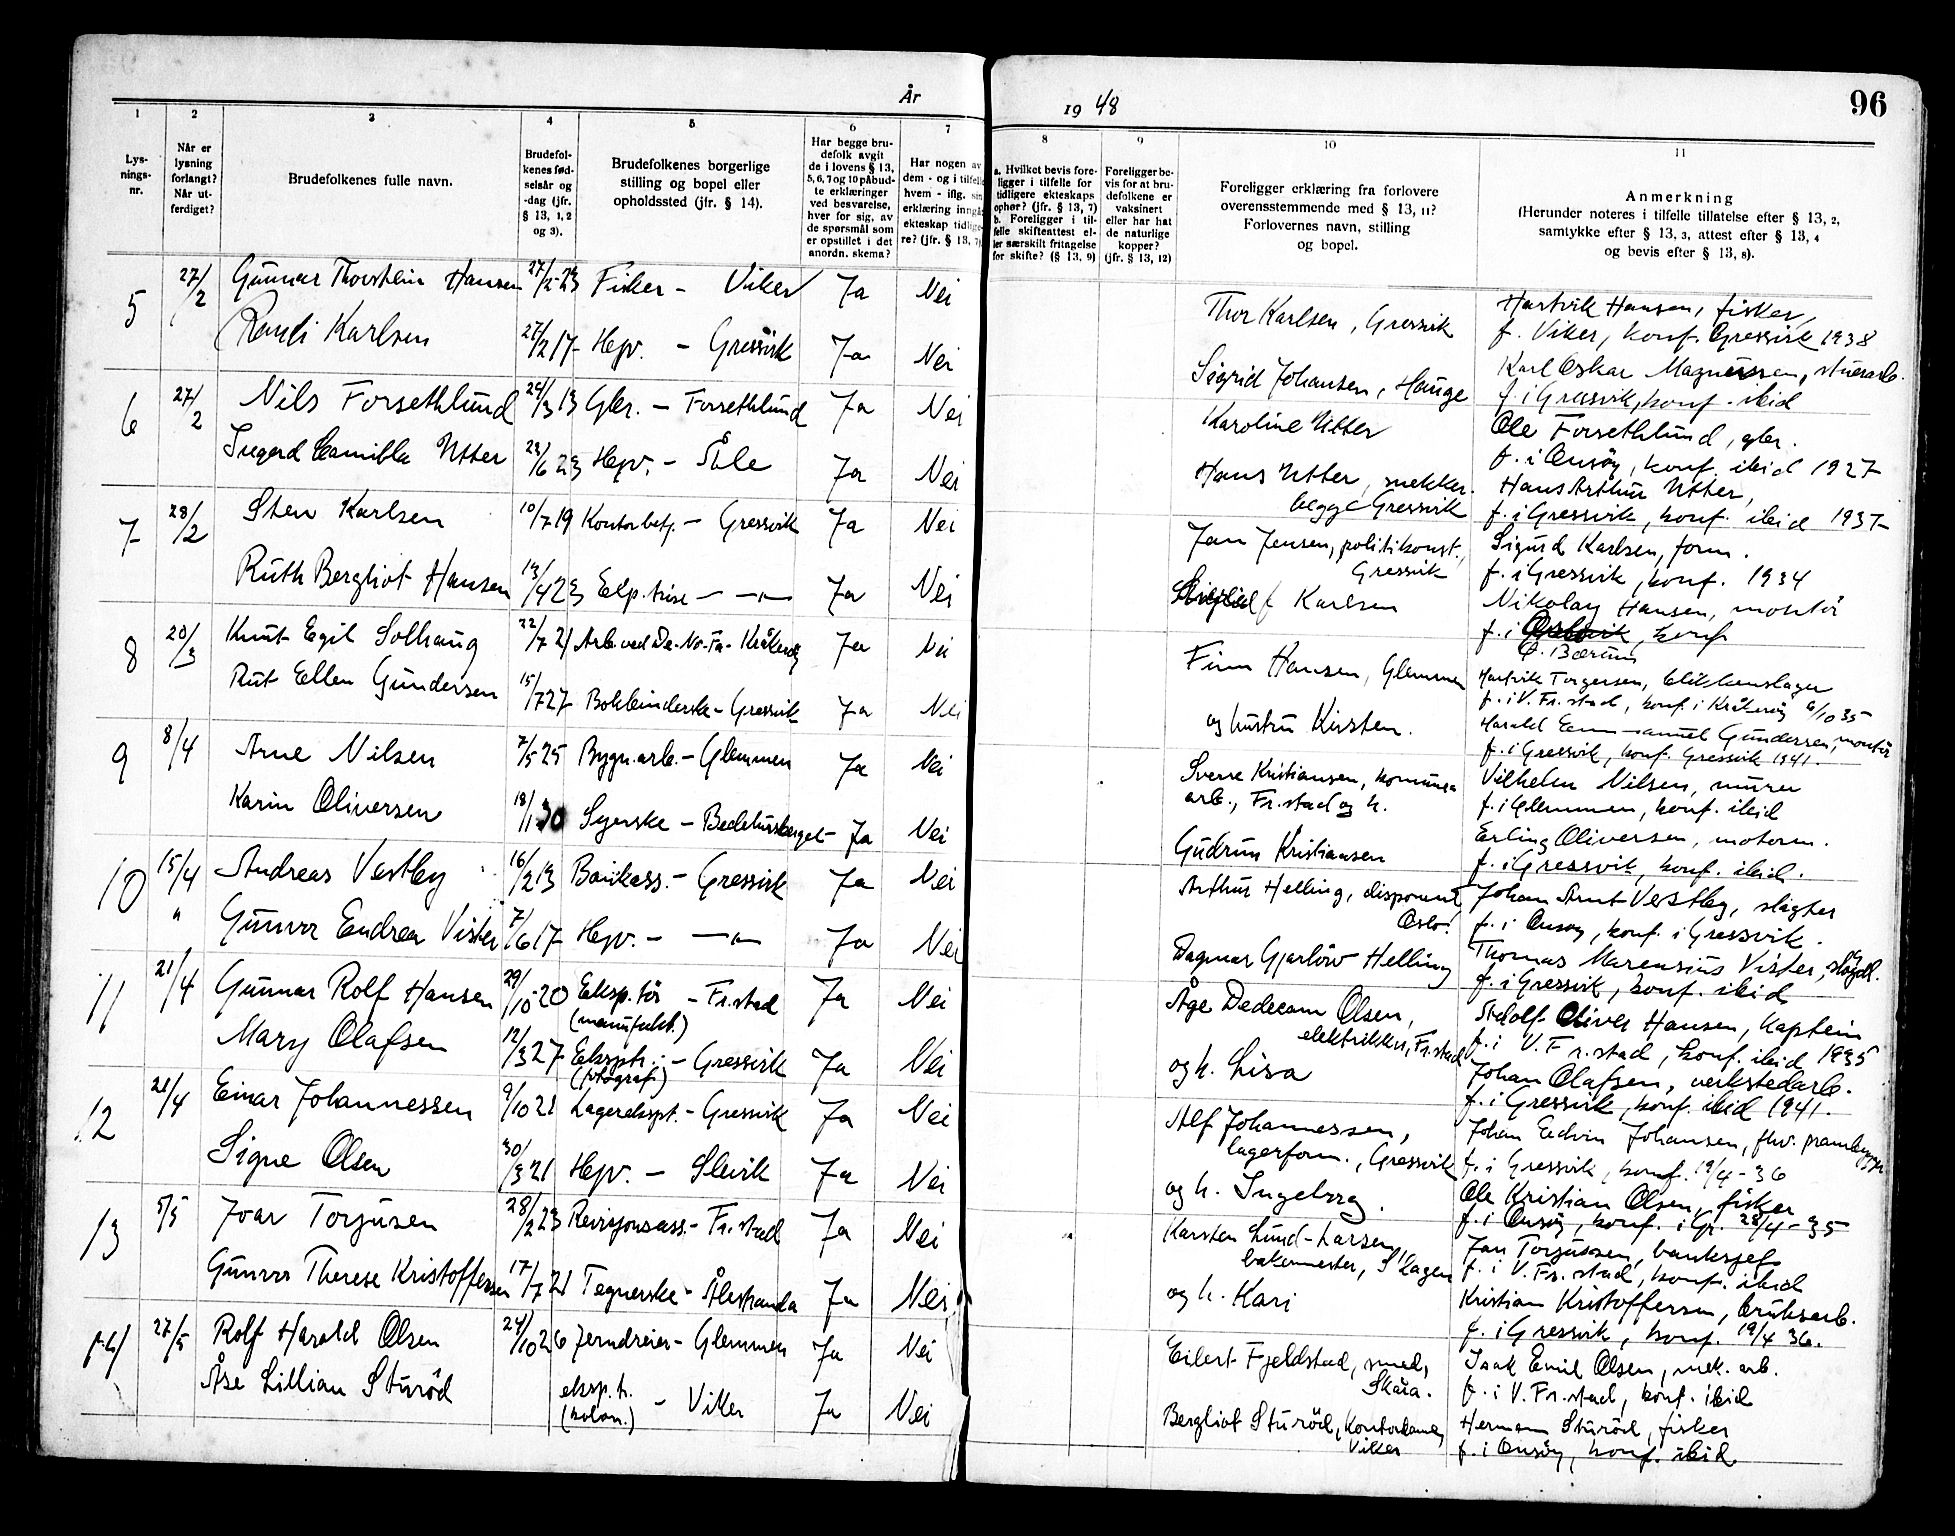 År
1948
96
1
2
3
4
5
6
7
8
9
10
11
Lys-
nings-
nr.
Når er
lysning
forlangt?
Når ut-
ferdiget?
Brudefolkenes fulle navn.
Brudefol-
kenes fød-
selsår og
-dag (jfr.
§ 13, 1, 2
og 3).
Brudefolkenes borgerlige
stilling og bopel eller
opholdssted (jfr. § 14).
Har begge bru-
defolk avgit
de i lovens § 13,
5, 6, 7 og 10 påbud-
te erklæringer
ved besvarelse,
hver for sig, av
de spørsmål som
er opstillet i det
anordn. skema?
Har nogen av
dem - og i tilfelle
hvem - iflg. sin
erklæring inngå
ekteskap tidlige-
re? (jfr. § 13, 7)
a. Hvilket bevis fore-
ligger i tilfelle for
tidligere ekteskaps
ophør? (jfr. § 13, 7)
b. Foreligger i til-
felle skifteattest el-
ler særskilt fritagelse
for skifte? (§ 13, 9)
Foreligger be-
vis for at bru-
defolkene er
vaksinert
eller har hat
de naturlige
kopper?
(jfr. § 13, 12)
Foreligger erklæring fra forlovere
overensstemmende med § 13, 11?
Forlovernes navn, stilling
og bopel.
Anmerkning
(Herunder noteres i tilfelle tillatelse efter § 13, 2,
samtykke efter § 13, 3, attest efter § 13, 4
og bevis efter § 13, 8).
5 27/2 Gunnar Thorstein Hansen 27/2-23 Fisker - Viker Ja Nei
Randi Karlsen 27/2 17 Hgv. - Gressvik Ja Nei
Thor Karlsen, Gressvik
Sigrid Johansen, Hauge
Hartvik Hansen, fisker,
f. Viker, konf. Gressvik 1938
Karl Oskar Magnussen, stuerarb.
f. i Gressvik, konf. ibid
6 27/2 Nils Forsethlund 24/3 13 Gbr. - Forsethlund Ja Nei
Ingerd Camilla Utter 23/6 23 Hgv. - Åle Ja Nei
Karoline Utter
Hans Utter, snekker.
begge Gressvik
Ole Forsethlund, gbr.
f. i Onsøy, konf. ibid 1927
Hans Arthur Utter,
f. i Gressvik, konf. ibid 1937
7 28/2 Sten Karlsen 10/7 19 Kontorbetj. - Gressvik Ja Nei
Ruth Bergliot Hansen 13/4 23 Eksp.trise - -"- Ja Nei
Jan Jensen, politikonst.,
Gressvik
Karlsen
Sigurd Karlsen, form.
f. i Gressvik, konf. 1934
Nikolay Hansen, montör
f. i , konf
Ø. Bærum
8 20/3 Knut Egil Solhaug 22/7 21 Arb. ved De-No-Fa- Kråkerøy Ja Nei
Rut Ellen Gundersen 15/7 27 Bokbinderske - Gressvik Ja Nei
Finn Hansen, Glemmen
og hustru Kirsten.
Hartvik Torgersen, blikkenslager
f. i V. Fr.stad, konf. i Kråkerøy 6/10 35
Harald Gundersen, montör
f. i Gressvik, konf. Gressvik 1941.
9 8/4 Arne Nilsen 7/5 25 Bygn.arb. - Glemmen Ja Nei
Karin Oliversen 18/1 30 Syerske - Bedehusberget - Ja Nei
Sverre Kristiansen, kommune
arb., Fr.stad og h.
Gudrun Kristiansen
Vilhelm Nilsen, murer
f. i Glemmen, konf. ibid
Erling Oliversen, motorm.
f. i Gressvik, konf. ibid.
10 15/4 Andreas Vestby 16/2 13 Bankass. - Gressvik Ja Nei
" Gunvor Endrea Vister 7/6 17 Hgv. - -"- Ja Nei
Arthur Helling, disponent,
Oslo.
Dagmar Gjarlöw Helling
Johan Arnt Vestby, slagter
f. i Onsøy, konf. i Gressvik.
Thomas Marensius Vister,
f. i Gressvik, konf. ibid
11 21/4 Gunnar Rolf Hansen 29/10-20 Eksp.tör - Fr.stad Ja Nei
(manufakt.)
Mary Olafsen 12/3 27 Eksptr. - Gressvik Ja Nei
(fotografi)
Åge Dedecam Olsen,
elektriker, Fr.stad
og h. Lisa
Adolf Oliver Hansen, kaptein
f. i V. Fr.stad, konf. ibid 1935
Johan Olafsen, verkstedarb.
f. i Gressvik, konf. ibid 1941.
12 21/4 Einar Johannessen 9/10 21 Lagerekspt. - Gressvik Ja Nei
Signe Olsen 30/3 21 Hgv. - Slevik Ja Nei
Alf Johannessen,
lagerform., Gressvik
og h. Ingeborg.
Johan Edvin Johansen, fhv. prambygger
f. i Gressvik, konf. 19/4-36
Ole Kristian Olsen, fisker
f. i Onsøy, konf. i Gr. 28/4-35
13 5/5 Joar Torjusen 28/2 23 Revisjonsass. - Fr.stad Ja Nei
Gunvor Therese Kristoffersen 17/7 21 Tegnerske - Ålestranda Ja Nei
Karsten Lund-Larsen,
bakermester, S'lagen
og h. Kari
Jan Torjussen, banksjef
f. i V. Fr.stad, konf. ibid
Kristian Kristoffersen, bruksarb.
f. i Gressvik, konf. 19/4 36.
14 27/5 Rolf Harald Olsen 24/10 26 Jerndreier - Glemmen Ja Nei
Åse Lillian Sturöd eksp.tr. - Viker Ja Nei
(kolon.)
Eilert Fjeldstad, smed,
Skåra.
Bergliot Sturöd, kontordame,
Viker
Isak Emil Olsen, mek. arb.
f. i V. Fr.stad, konf. ibid
Herman Sturöd, fisker
f. i Onsøy, konf. ibid